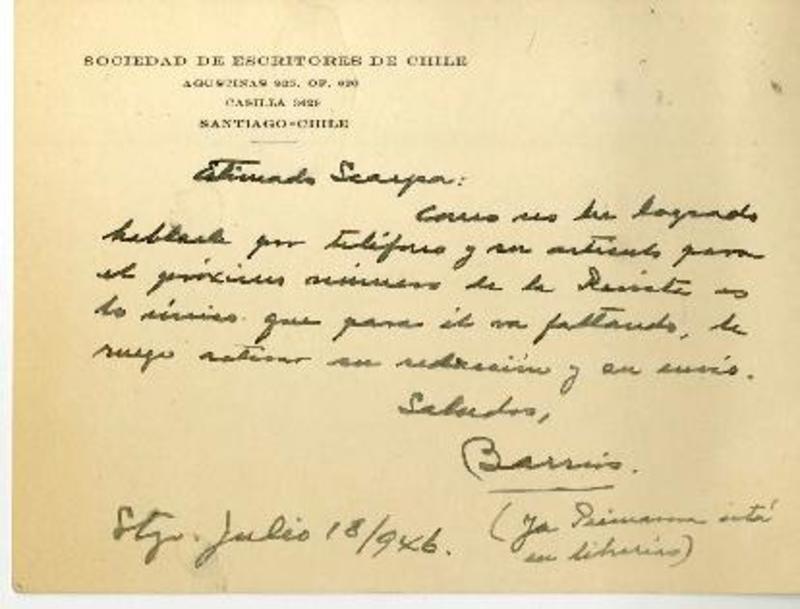 SOCIEDAD DE ESCRITORES DE CHILE
AGUSTINAS 925. OF. 620
CASILLA 3429
SANTIAGO-CHILE
Estimado Scarpa:
Como no he logrado
hablarle por teléfono y su artículo para
el próximo número de la Revista es
lo único que para él va faltando, le
ruego activar su redacción y su envío.
Saludos,
Barrios.
Stgo. Julio 18/946.
(Ya está
en librerías)